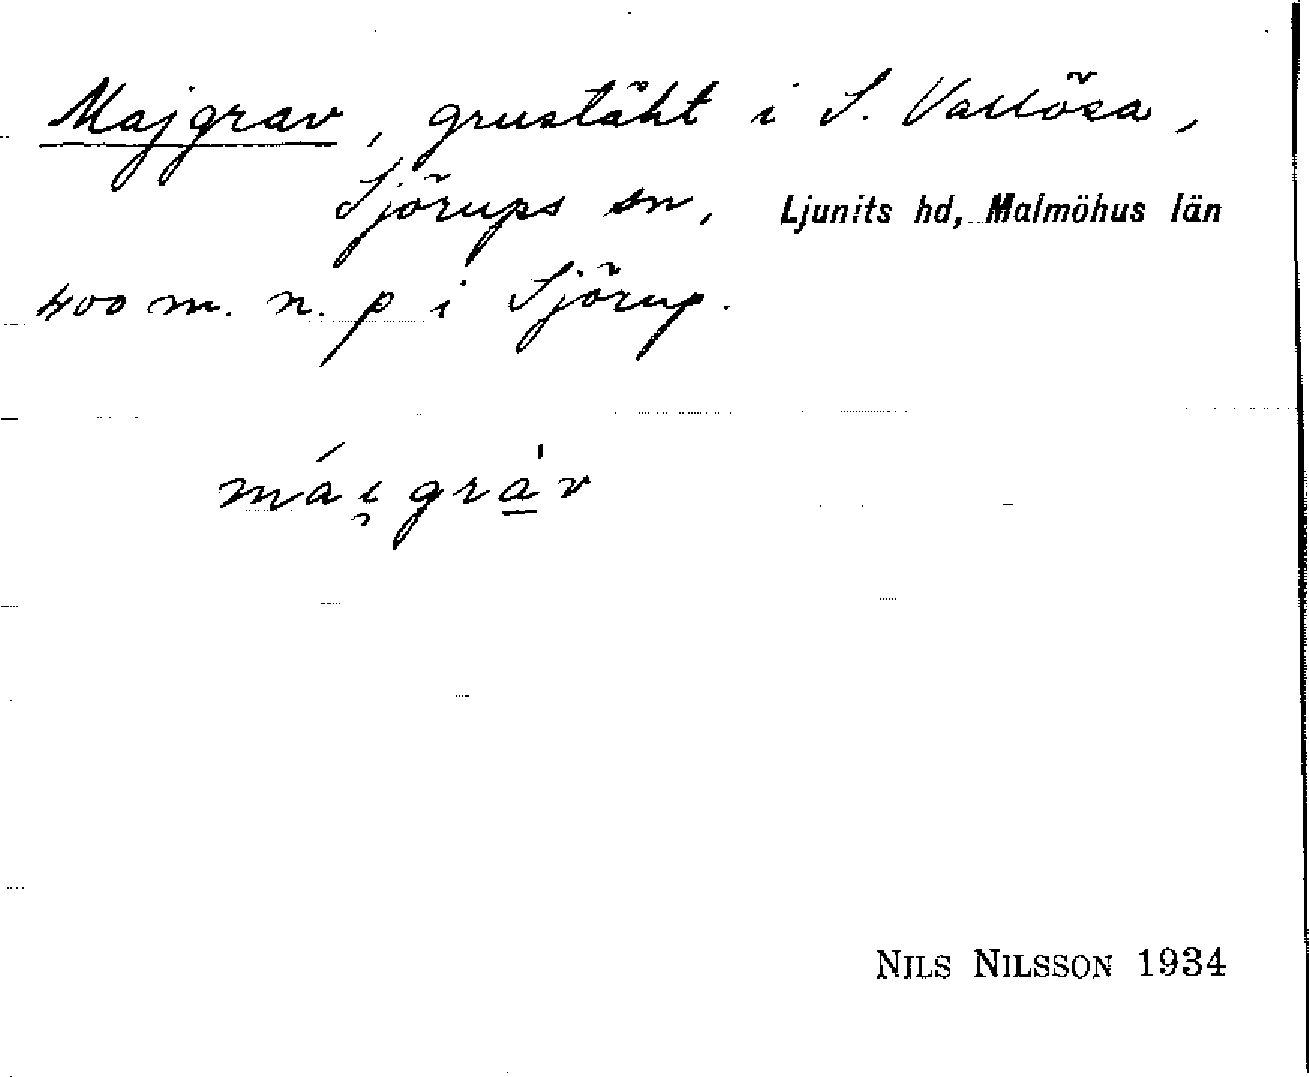 Majgrav, grustäkt i S. Vallösa,
Sjörups sn, Ljunits hd, Malmöhus län
400 m. n. p i Sjörup.
mái̯gra̲̍v
NILS NILSSON 1934